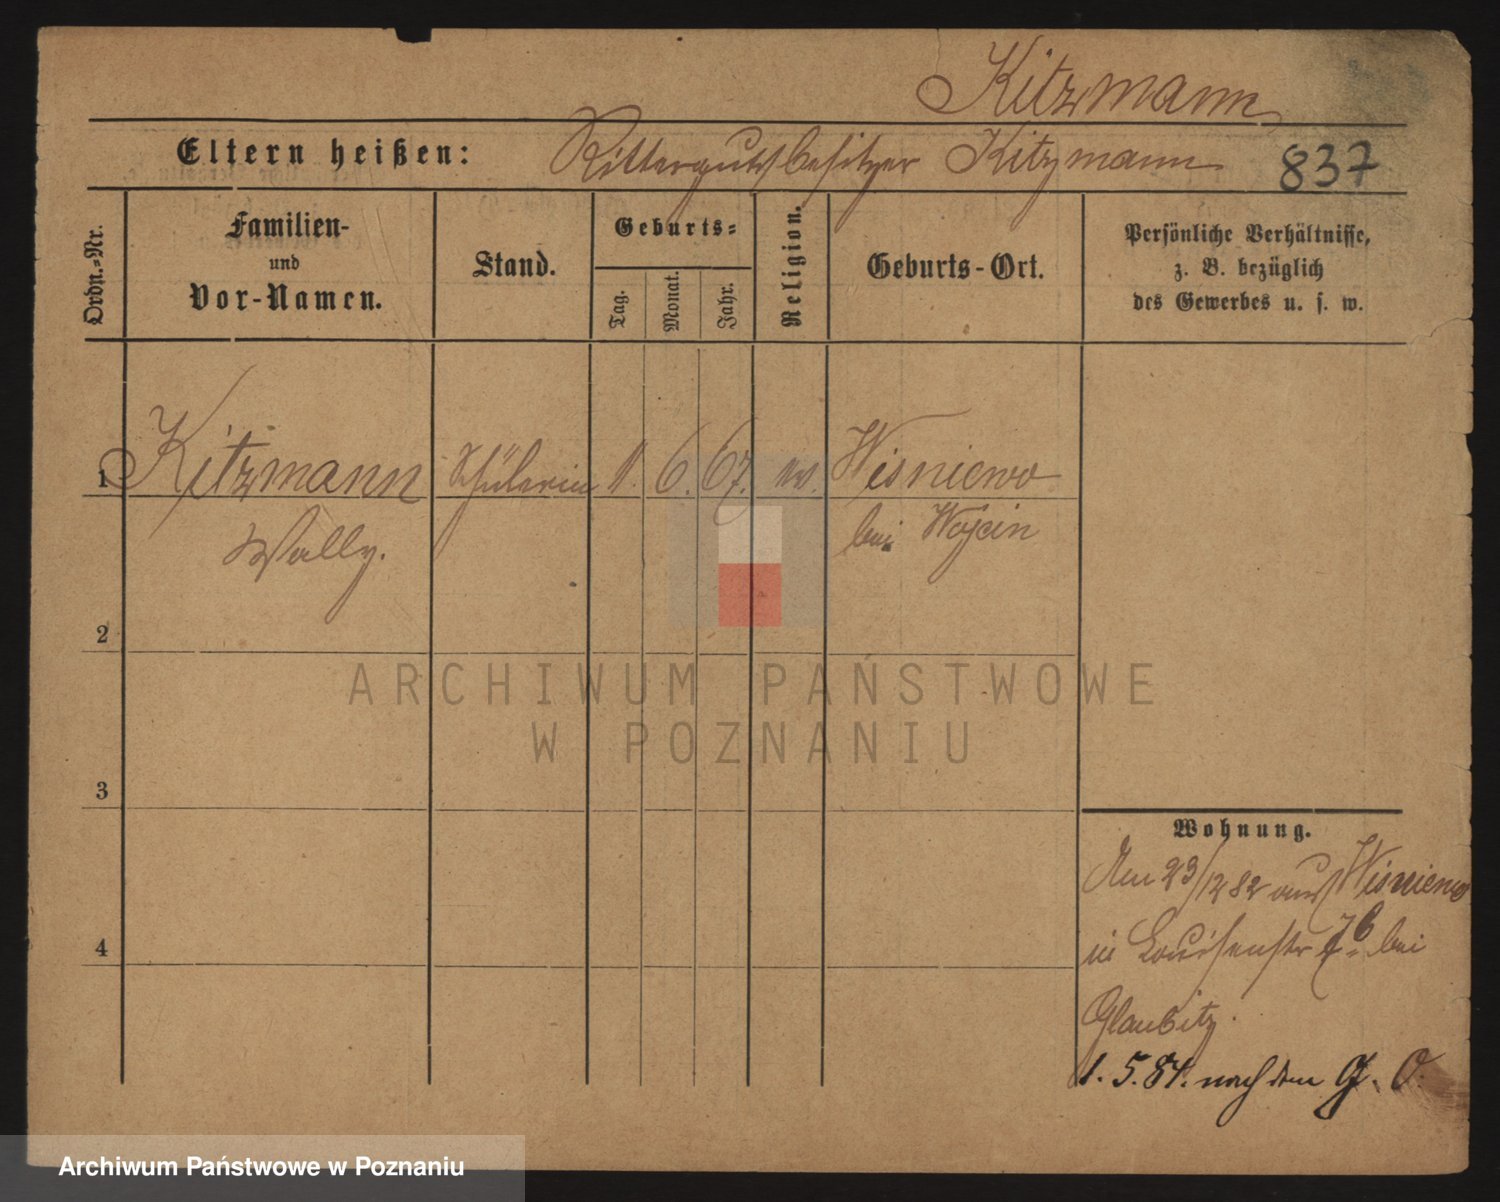 Kitzmann
Eltern heißen: Rittergutsbesitzer Kitzmann 837
Ordn.-Nr.
Familien-
und
Vor-Namen.
Stand.
Geburts-
Tag.
Monat.
Jahr.
Religion.
Geburts-Ort.
Persönliche Verhältnisse,
z. B. bezüglich
des Gewerbes u. s. w.
1 Kitzmann Schülerin 11. 6. 67. ev. Wisniewo
Wally. bei Wojcin
2
3
4
Wohnung.
Am 23/12 82 aus Wisniewo
in Louisenstr bei
Glaubitz.
1. 5. 84. nach dem G. O.
ARCHIWUM PAŃSTWOWE
W POZNANIU
Archiwum Państwowe w Poznaniu